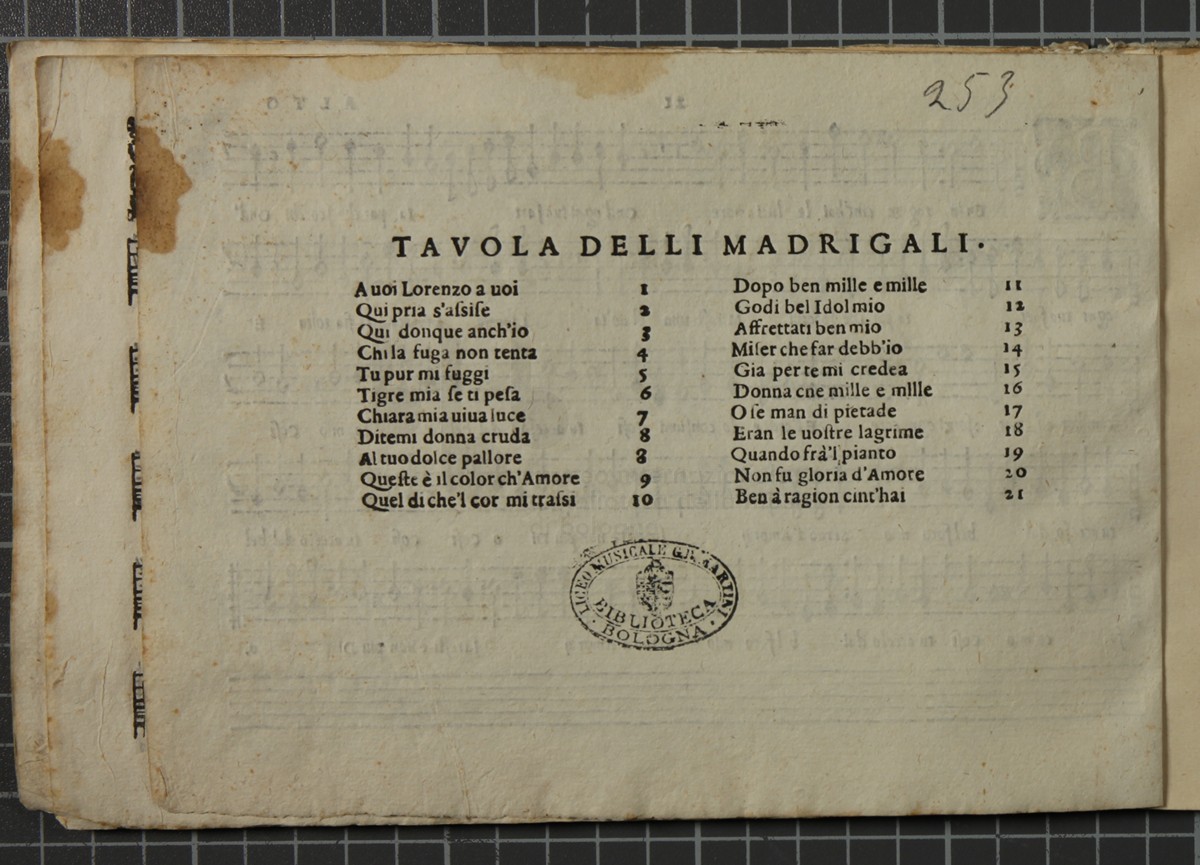 253
TAVOLA DELLI MADRIGALI.
A uoi Lorenzo a uoi 1
Qui pria s'aſsiſe 2
Qui donque anch'io 3
Chi la fuga non tenta 4
Tu pur mi fuggi 5
Tigre mia ſe ti peſa 6
Chiara mia uiua luce 7
Ditemi donna cruda 8
Al tuo dolce pallore 8
Queſte è il color ch'Amore 9
Quel di che'l cor mi traſsi 10
Dopo ben mille e mille 11
Godi bel Idol mio 12
Affrettati ben mio 13
Miſer che far debb'io 14
Gia per te mi credea 15
Donna cne mille e mllle 16
O ſe man di pietade 17
Eran le uoſtre lagrime 18
Quando frà'l pianto 19
Non fu gloria d'Amore 20
Ben à ragion cint'hai 21
LICEO MUSICALE G.B. MARTINI
BIBLIOTECA
BOLOGNA